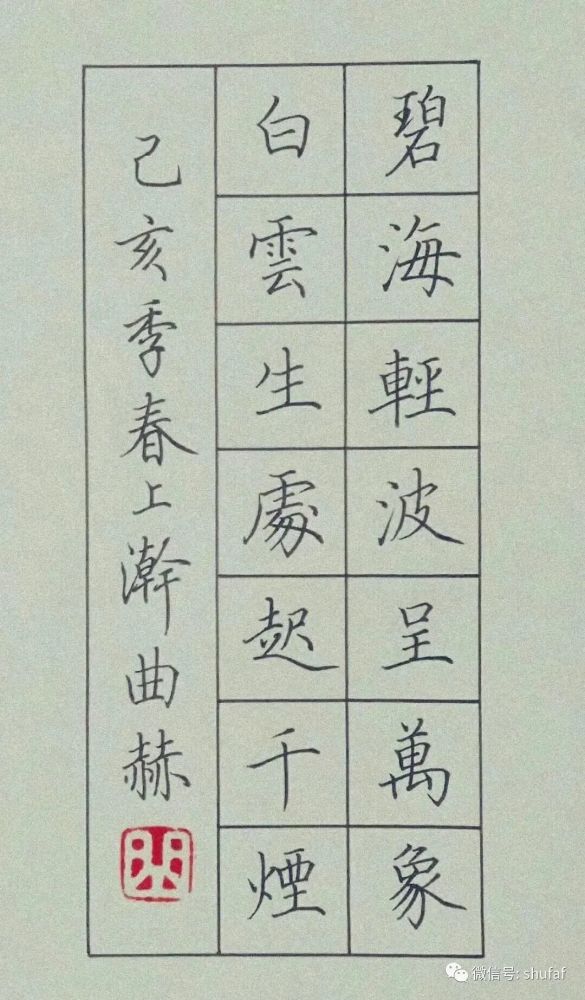 碧海輕波呈萬象
白雲生處起千煙
己亥季春上澣曲赫
微信号: shufaf